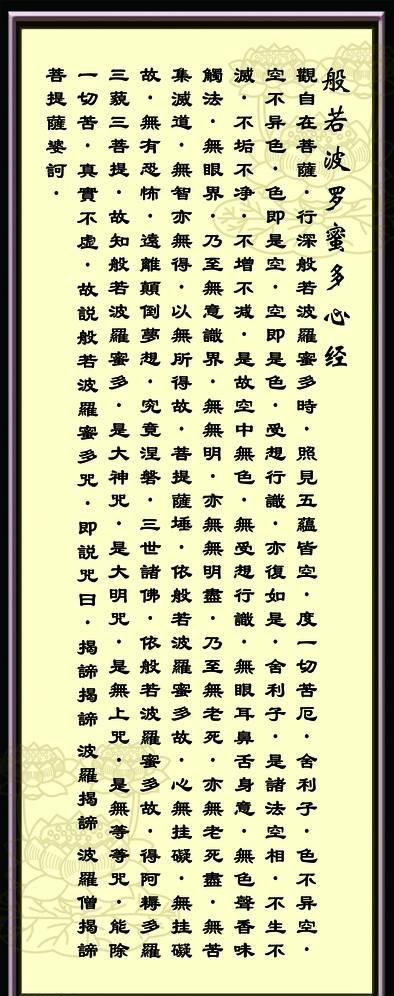 般若波罗蜜多心经
觀自在菩薩·行深般若波羅蜜多時·照見五蘊皆空·度一切苦厄·舍利子·色不异空·
空不异色·色即是空·空即是色·受想行識·亦復如是·舍利子·是諸法空相·不生不
滅·不垢不净·不增不减·是故空中無色·無受想行識·無眼耳鼻舌身意·無色聲香味
觸法·無眼界·乃至無意識界·無無明·亦無無明盡·乃至無老死·亦無老死盡·無苦
集滅道·無智亦無得·以無所得故·菩提薩埵·依般若波羅蜜多故·心無挂礙·無挂礙
故·無有恐怖·遠離顛倒夢想·究竟涅磐·三世諸佛·依般若波羅蜜多故·得阿耨多羅
三藐三菩提·故知般若波羅蜜多·是大神咒·是大明咒·是無上咒·是無等等咒·能除
一切苦·真實不虛·故説般若波羅蜜多咒·即説咒曰·揭諦揭諦 波羅揭諦 波羅僧揭諦
菩提薩婆訶·